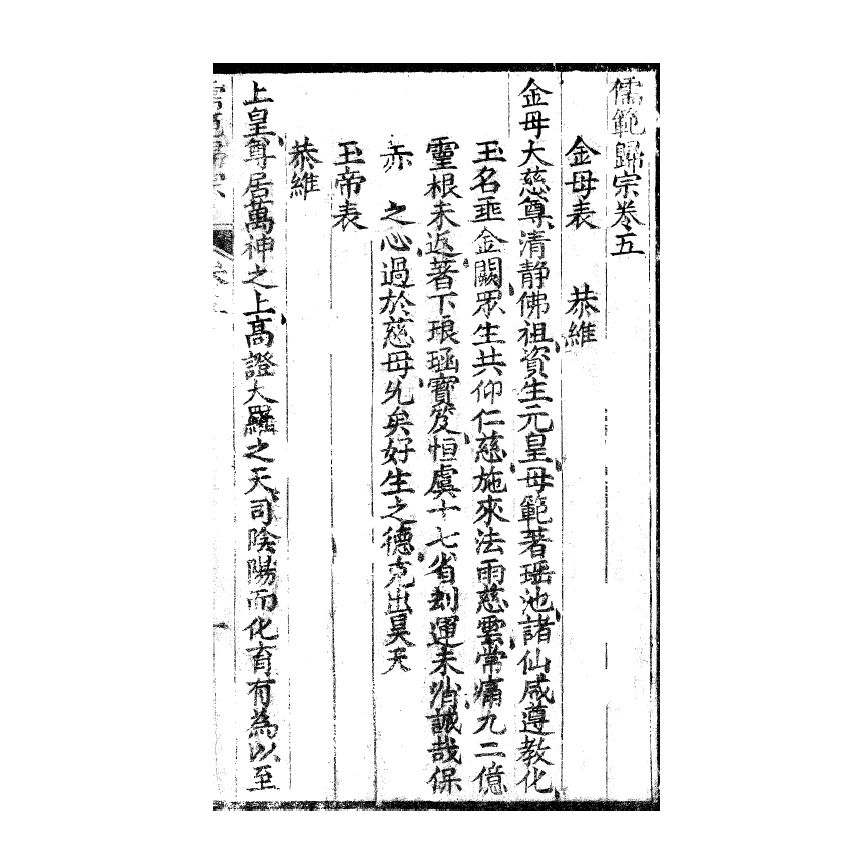 儒範歸宗卷五
金母表　恭維
金母大慈尊清静佛祖資生元皇母範著瑶池諸仙咸遵教化
玉名垂金闕眾生共仰仁慈施來法雨慈雲常痛九二億
靈根未返著下琅函寶笈恒虞十七省刦運未消誠哉保
赤　之心過於慈母允矣好生之德克出昊天
玉帝表
恭維
上皇尊居萬神之上高證大羅之天司陰陽而化育有為以至
儒範歸宗　卷五　一